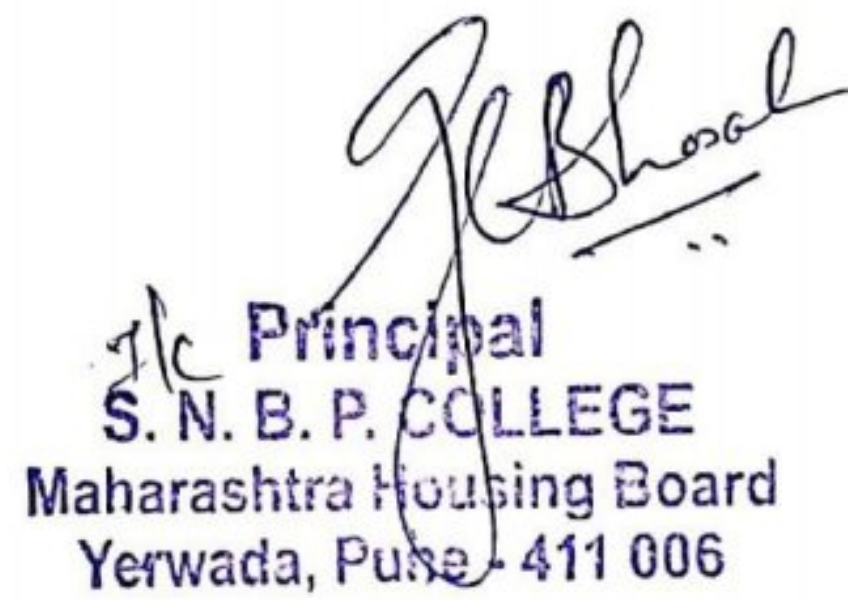 Bhosale
I/c Principal
S. N. B. P. COLLEGE
Maharashtra Housing Board
Yerwada, Pune - 411 006